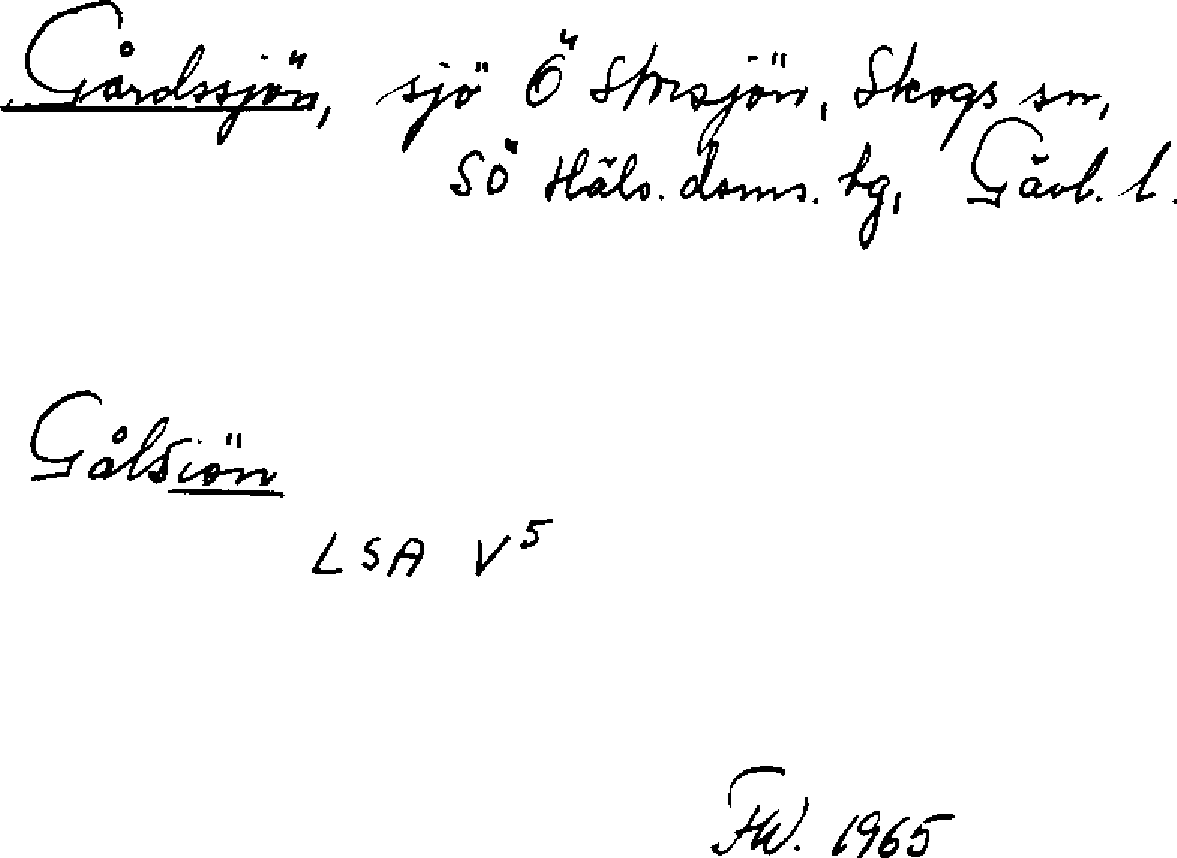 Gårdssjön, sjö Ö Storsjön, Skogs sn,
SÖ Häls. doms. tg, Gävl. l.
Gålsiön
LSA V5
FW. 1965